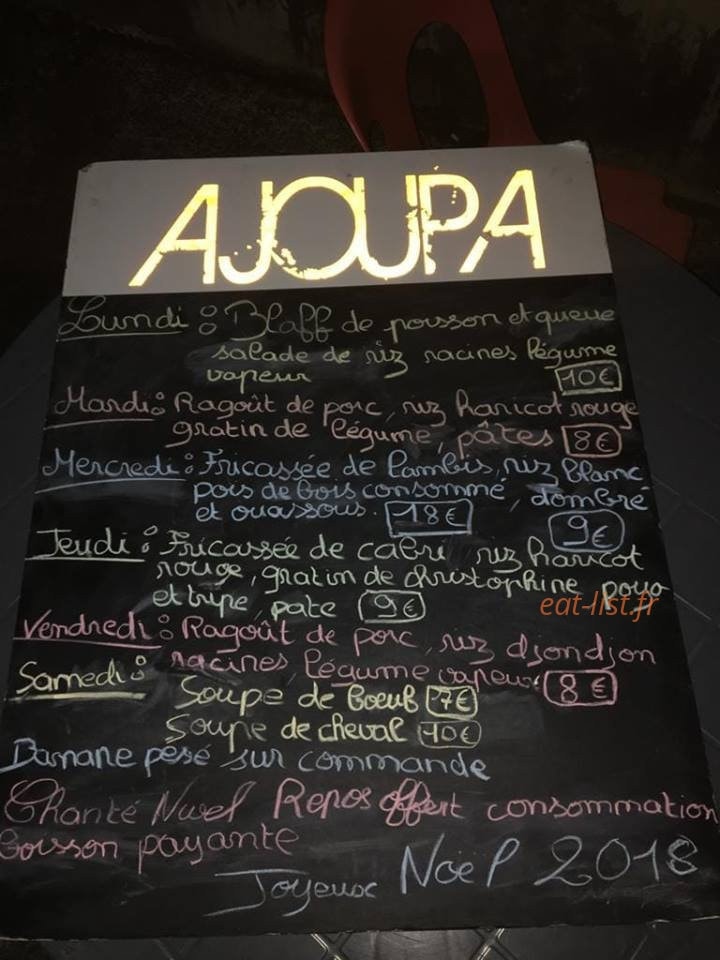 AJOUPA
Lundi : Blaff de poisson et queue
salade de riz racines légume
vapeur 10€
Mardi : Ragoût de porc, riz haricot rouge
gratin de légume pâtes 8€
Mercredi : Fricassée de lambis, riz blanc
pois de bois consommé, dombre
et ouassous. 18€ 9€
Jeudi : Fricassée de cabri riz haricot
rouge, gratin de christophine poyo
et tripe, pate 9€
eat-list.fr
Vendredi : Ragoût de porc, riz djondjon
racines légume vapeur 8€
Samedi : Soupe de boeuf 7€
Soupe de cheval 10€
Banane pesé sur commande
Chanté Nwel Repas offert consommation
boisson payante
Joyeux Noël 2018